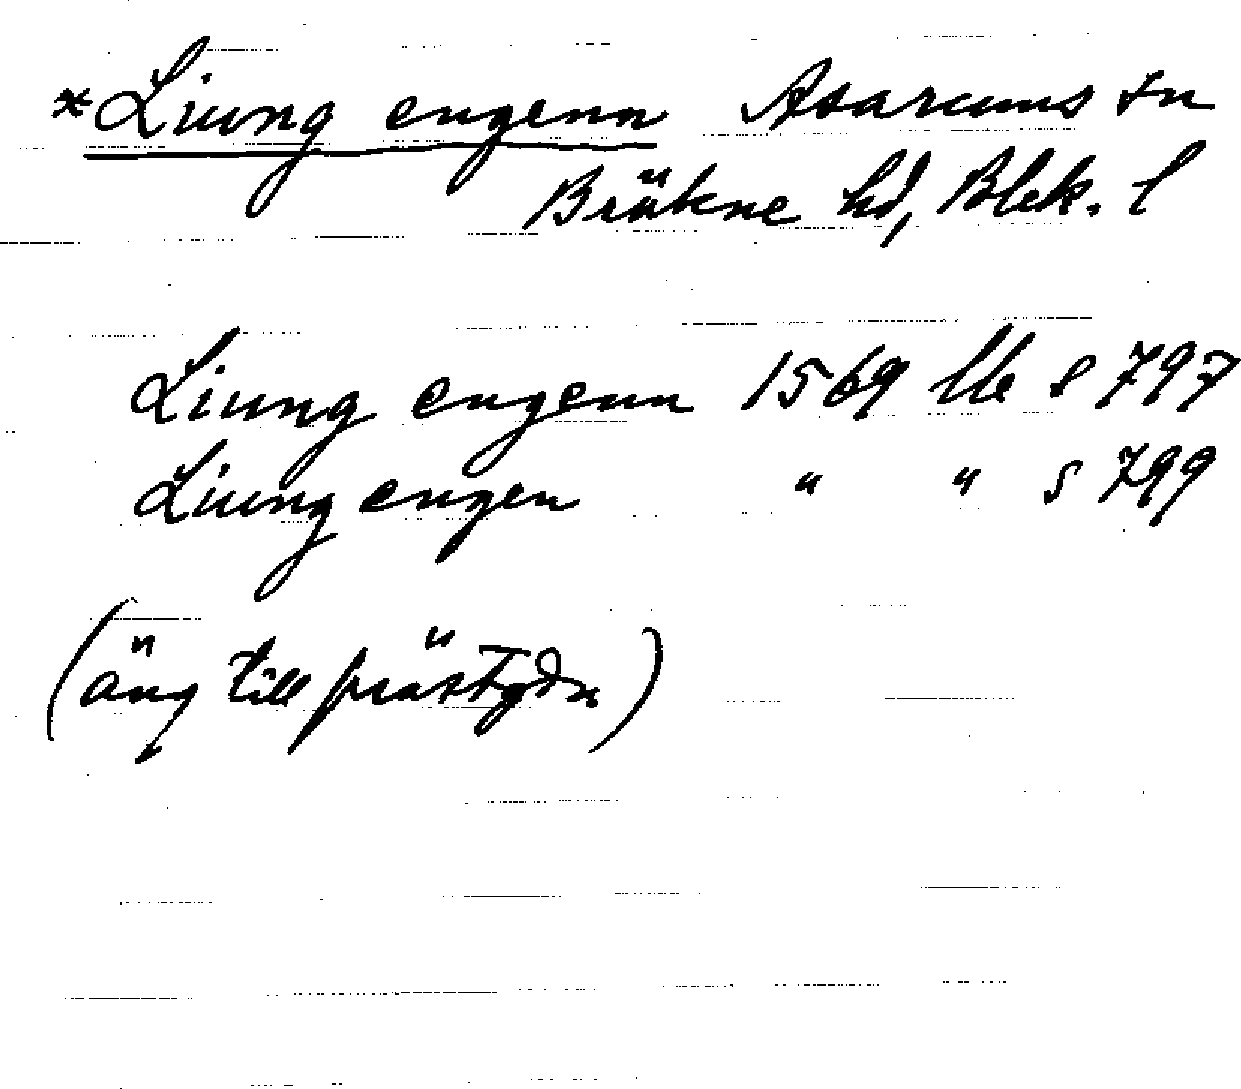 *Liung engenn Asarums sn
Bräkne hd, Blek. l
Liung engenn 1569 lle s 797
Liung engen " " s 799
(äng till prästgdn)